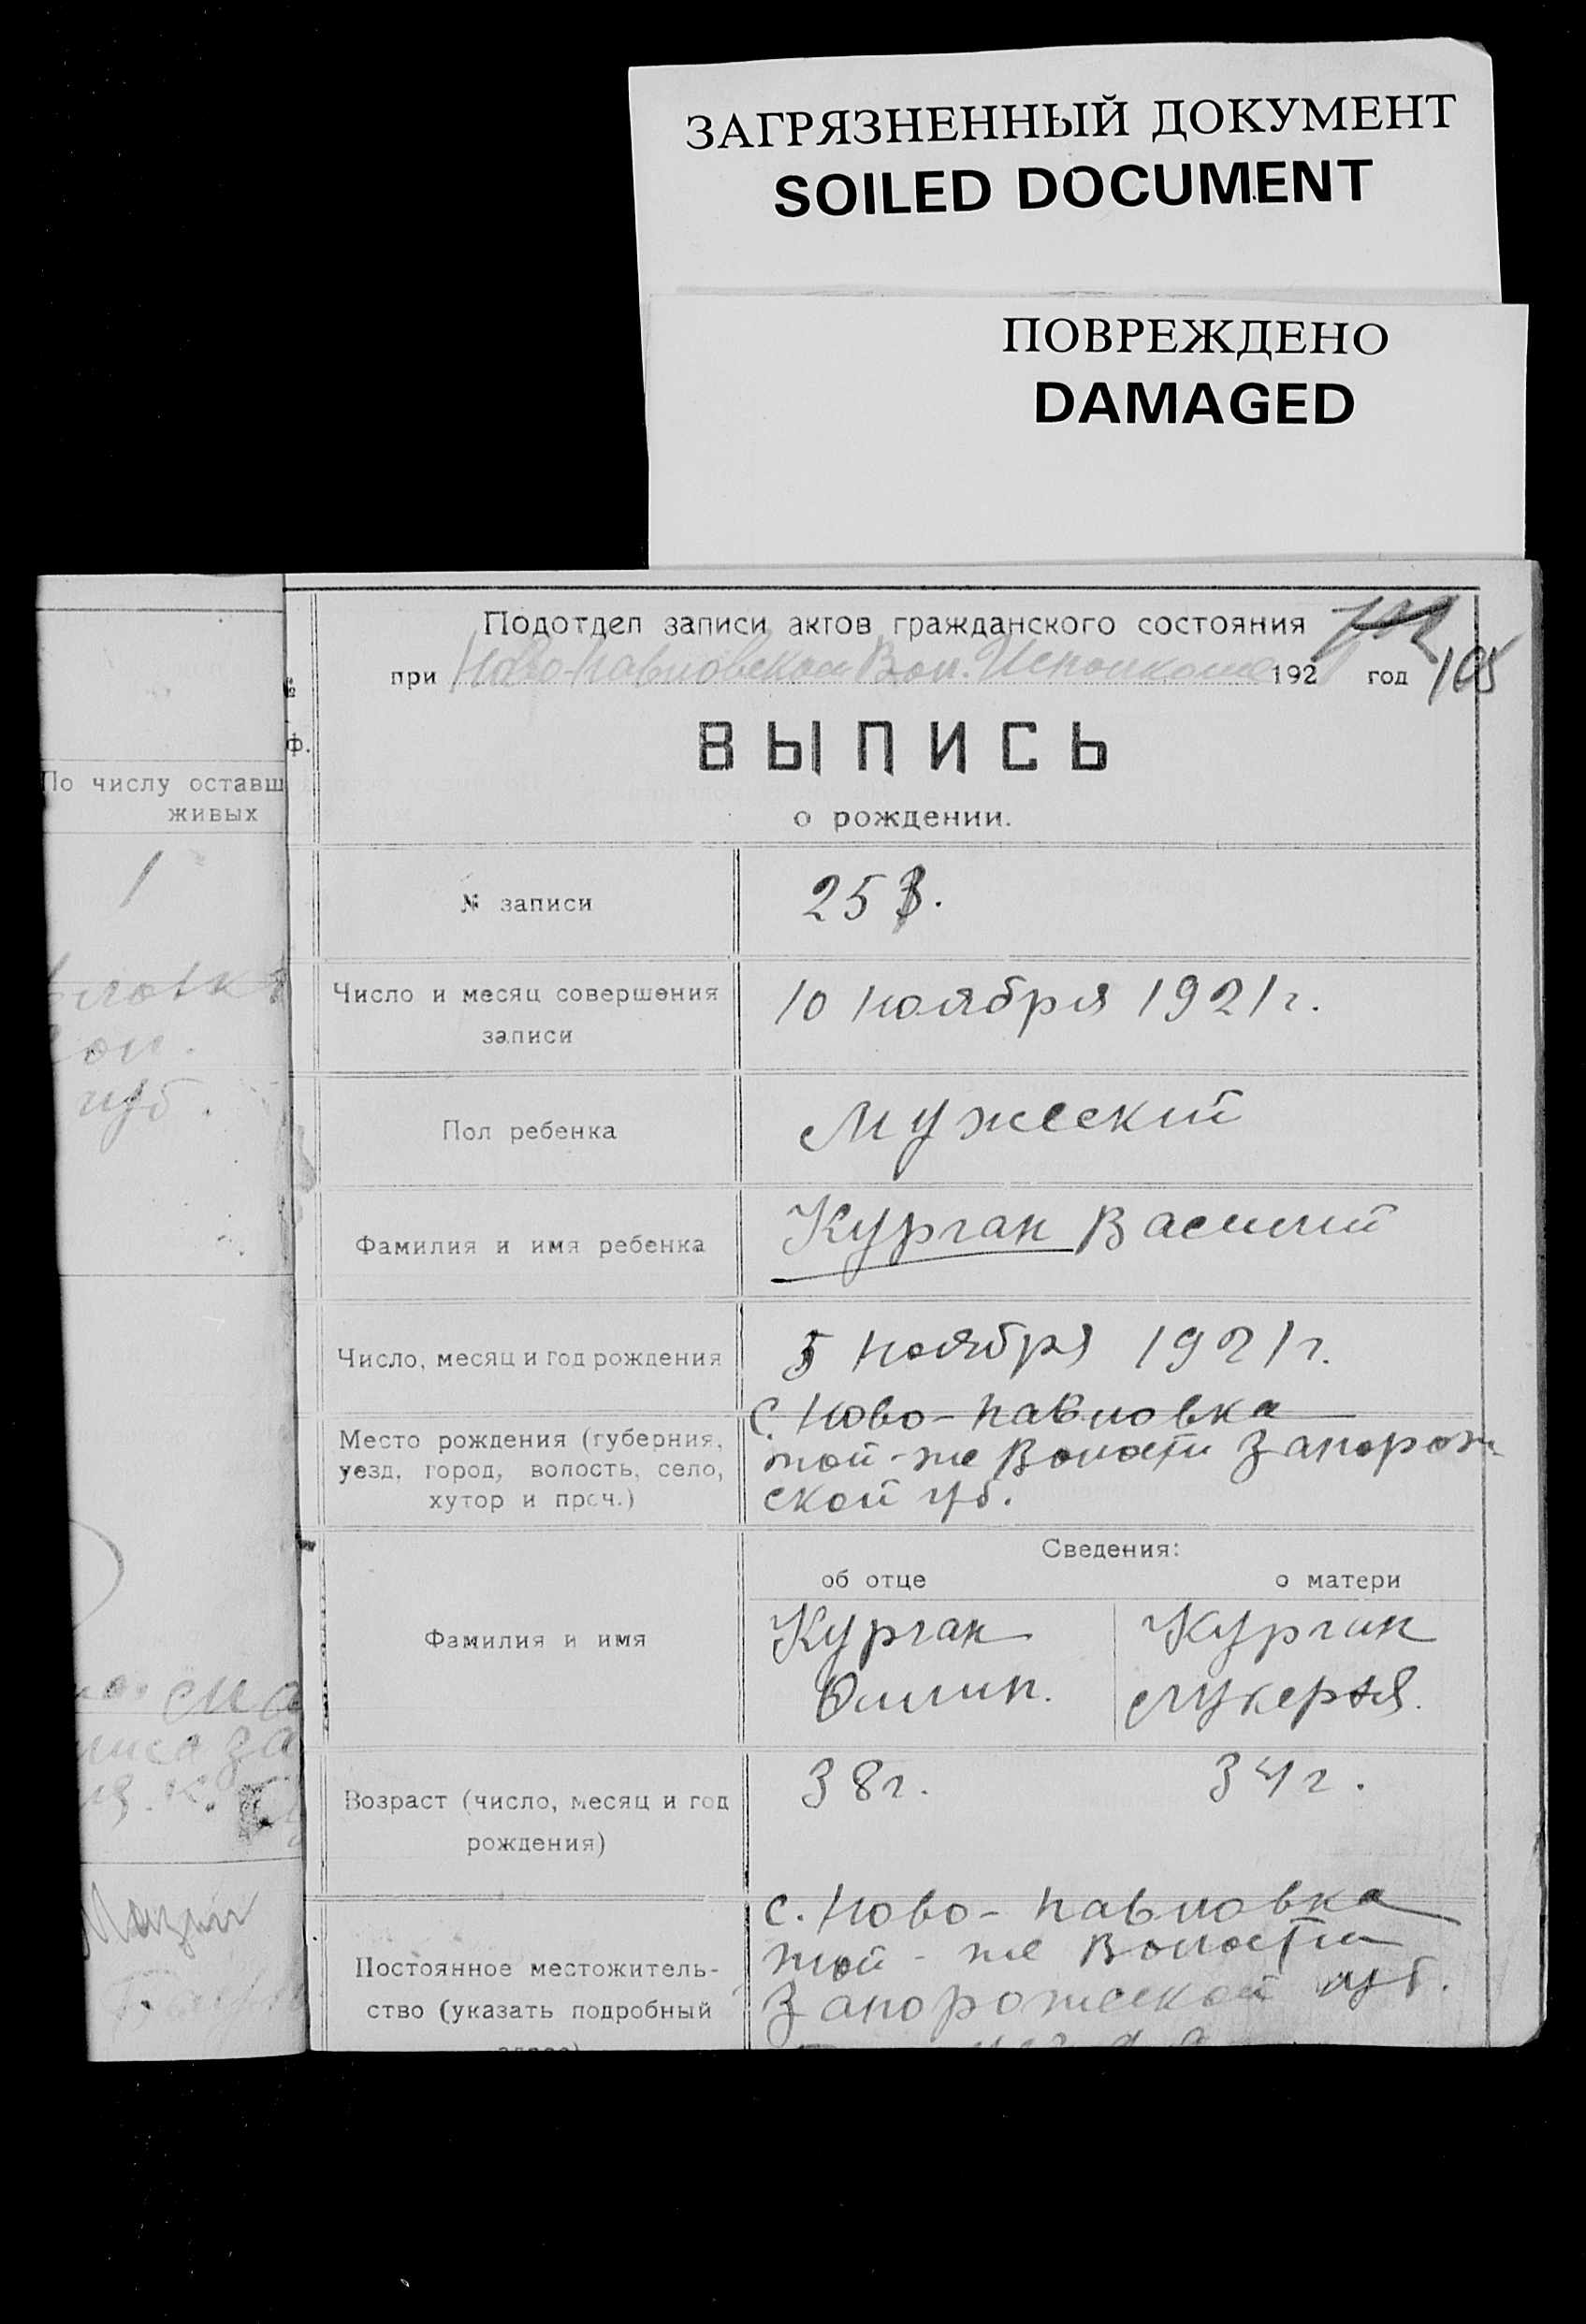 ЗАГРЯЗНЕННЫЙ ДОКУМЕНТ
SOILED DOCUMENT
ПОВРЕЖДЕНО
DAMAGED
По числу оставш
живых
1
губ.
Подотдел записи актов гражданского состояния
при Ново-Павловском Вол. Исполкоме 1921 год 105
ВЫПИСЬ
о рождении.
№ записи 253.
Число и месяц совершения
записи
10 ноября 1921 г.
Пол ребенка Мужеский
Фамилия и имя ребенка Курган Василий
Число, месяц и год рождения 5 ноября 1921 г.
Место рождения (губерния,
уезд, город, волость, село,
хутор и проч.)
С. Ново-Павловка
той-же Волости Запорож
ской губ.
Сведения:
об отце о матери
Фамилия и имя
Курган Курган
Филип. Лукерья.
Возраст (число, месяц и год
рождения)
38 г. 34 г.
Постоянное местожитель-
ство (указать подробный
с. Ново-Павловка
той-же Волости
Запорожеской губ.